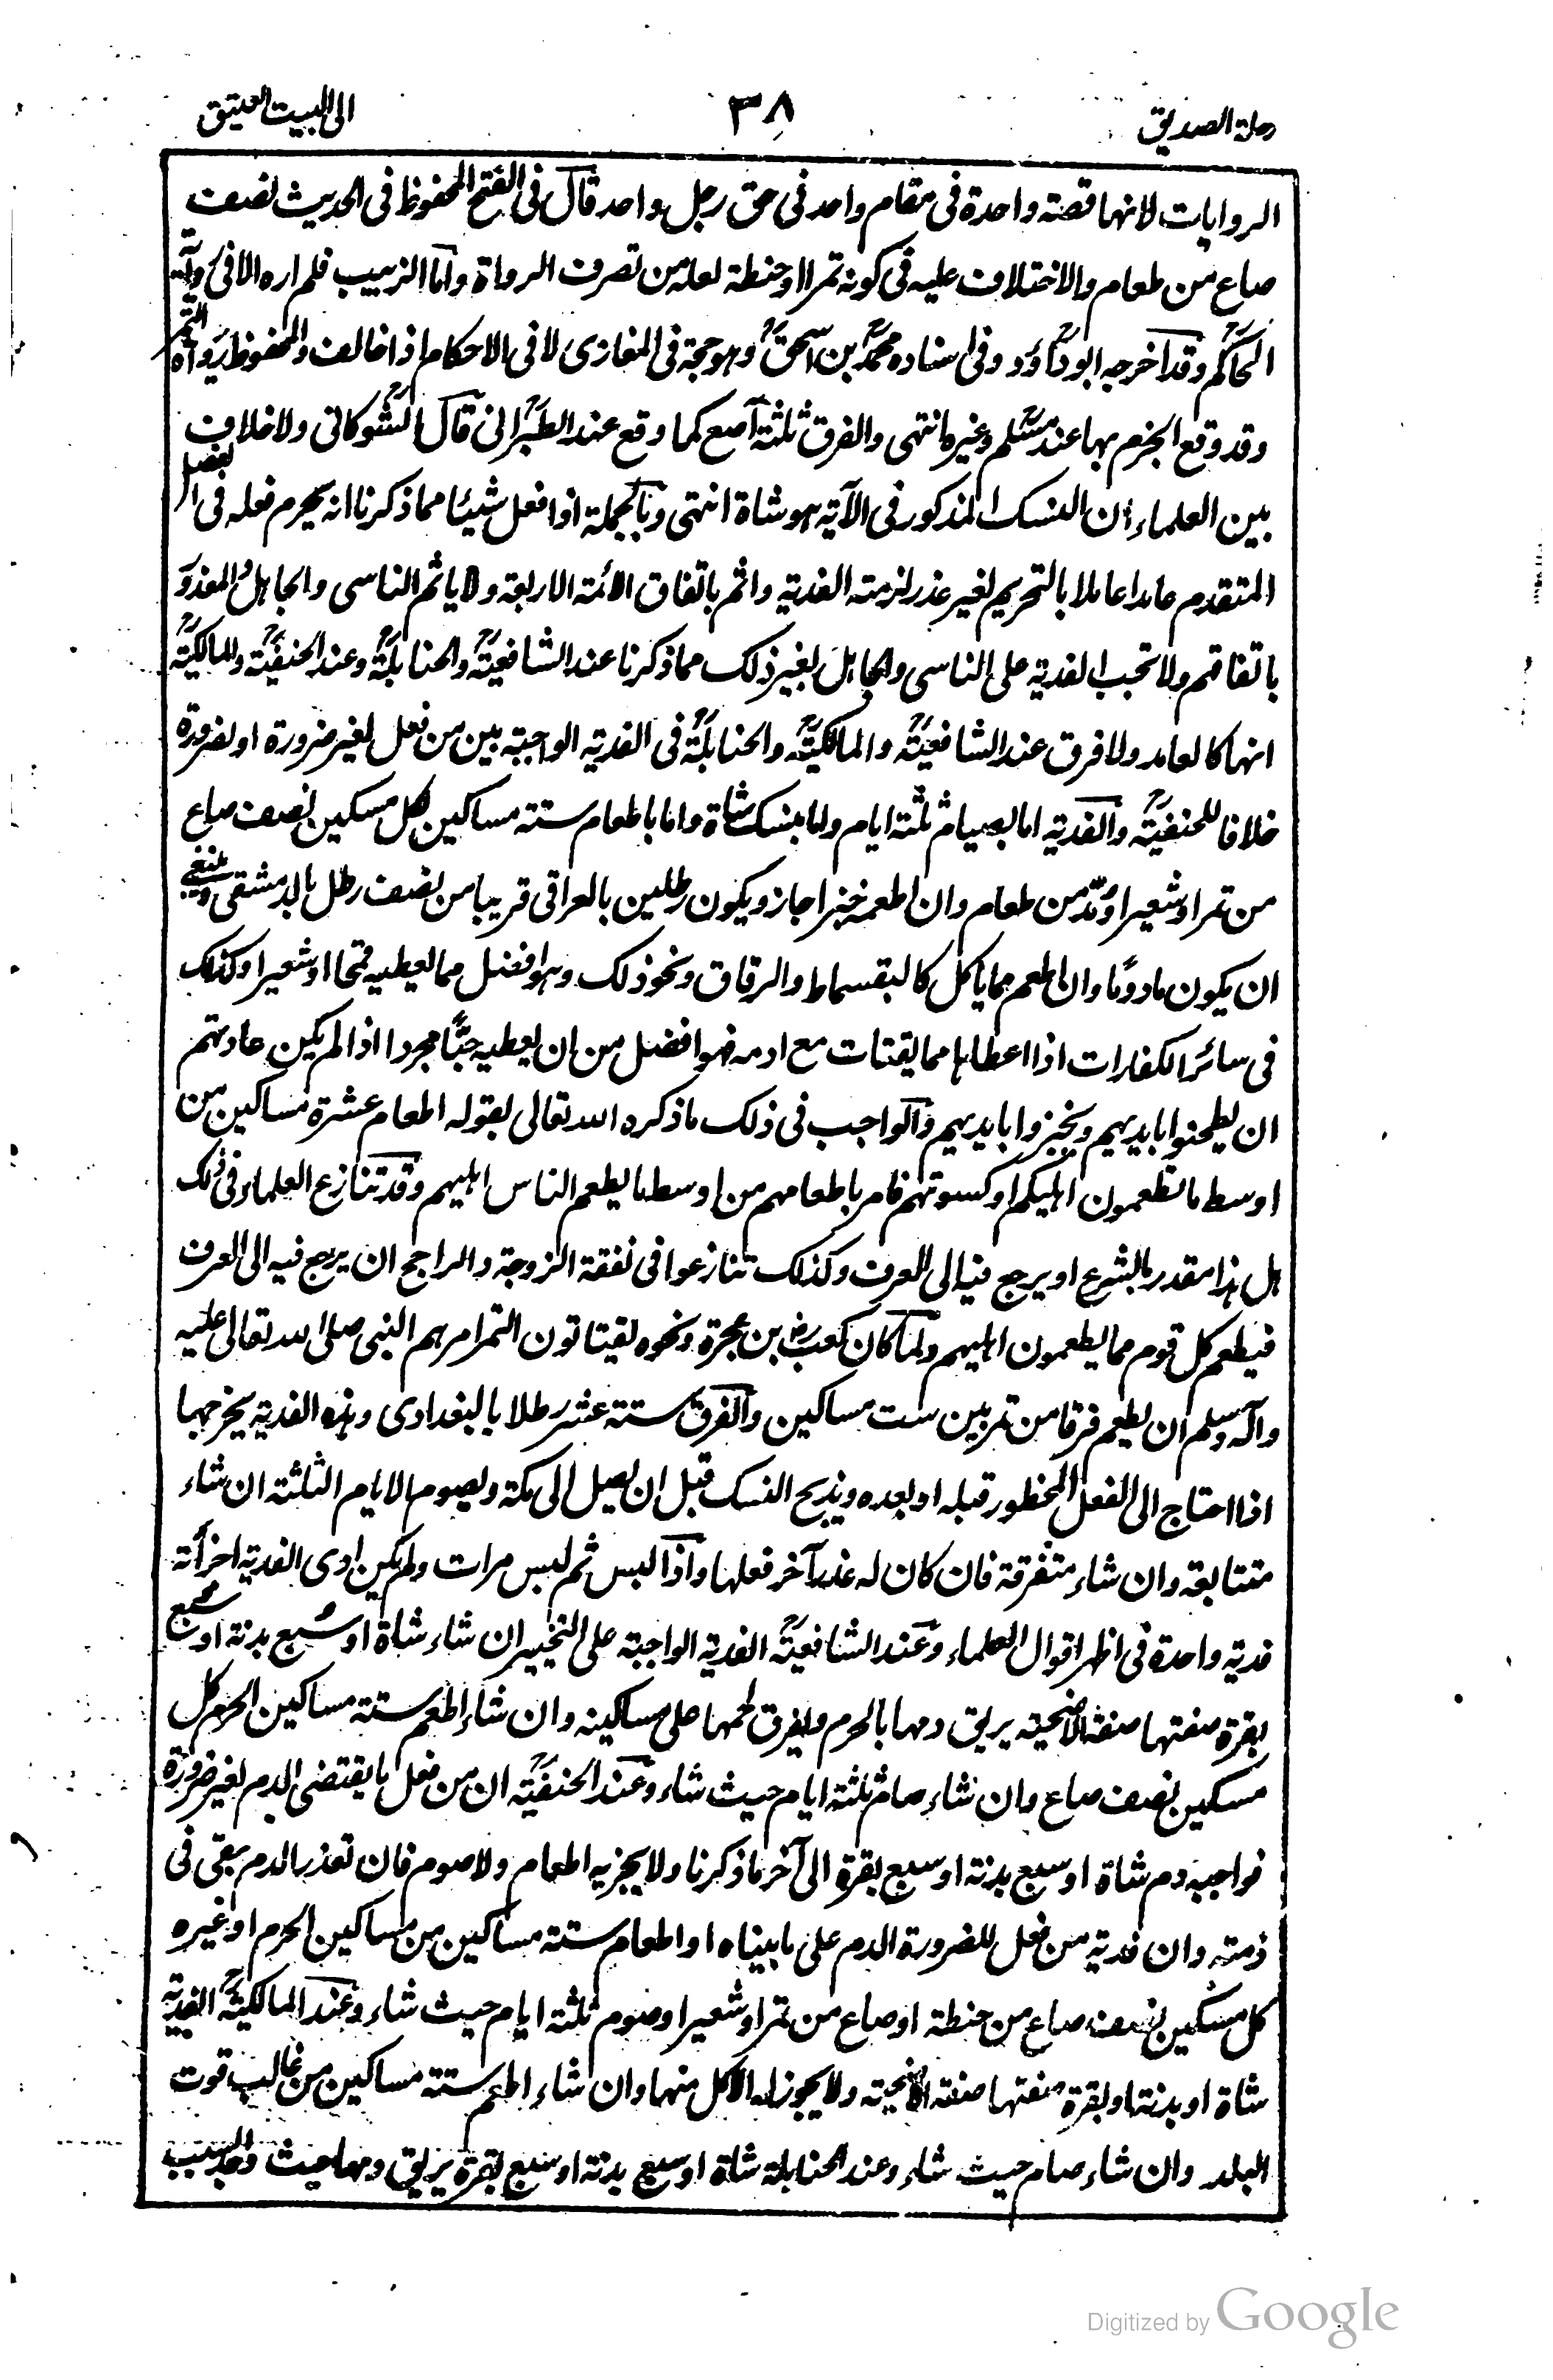 رحلة الصديق
٣٨
الى البيت العتيق
الروايات لانها قصة واحدة فى مقام واحد فى حق رجل واحد قال فى الفتح المحفوظ فى الحديث نصف
صاع من طعام والاختلاف عليه فى كونه تمرا او حنطة لعله من تصرف الرواة واما الزبيب فلم اره الا فى رواية
الحاكم وقد اخرجه ابو داؤد وفى اسناده محمد بن اسحق وهو حجة فى المغازى لا فى الاحكام اذا خالف والمحفوظ رواية التمر
وقد وقع الجزم بها عند مسلم وغيره انتهى والفرق ثلثة آصع كما وقع عند الطبرانى قال الشوكانى ولا خلاف
بين العلماء ان النسك المذكور فى الآية هو شاة انتهى وبالجملة اذا فعل شيئا مما ذكرنا انه يحرم فعله فى الفصل
المتقدم عامدا عاملا بالتحريم لغير عذر لزمته الفدية واثم باتفاق الائمة الاربعة ولا ياثم الناسى والجاهل المعذور
باتفاقهم ولا تجب الفدية على الناسى والجاهل بغير ذلك مما ذكرنا عند الشافعية والحنابلة وعند الحنفية والمالكية
انهما كالعامد ولا فرق عند الشافعية والمالكية والحنابلة فى الفدية الواجبة بين من فعل لغير ضرورة او لضرورة
خلافا للحنفية والفدية اما بصيام ثلثة ايام واما بنسك شاة واما باطعام ستة مساكين لكل مسكين نصف صاع
من تمر او شعير او مد من طعام وان اطعمه خبزا جاز ويكون رطلين بالعراقى قريبا من نصف رطل بالدمشقى وينبغى
ان يكون مادوما وان اطعم مما ياكل كالبقسماط والرقاق ونحو ذلك وهو افضل مما يعطيه قمحا او شعيرا وكذلك
فى سائر الكفارات اذا اعطاها مما يقتات مع ادمه فهو افضل من ان يعطيه حبا مجردا اذا لم يكن عادتهم
ان يطحنوا بايديهم ويخبزوا بايديهم والواجب فى ذلك ما ذكره الله تعالى بقوله اطعام عشرة مساكين من
اوسط ما تطعمون اهليكم او كسوتهم فامر باطعامهم من اوسط ما يطعم الناس اهليهم وقد تنازع العلماء فى ذلك
هل هذا مقدر بالشرع او يرجع فيه الى العرف وكذلك تنازعوا فى نفقة الزوجة والراجح ان يرجع فيه الى العرف
فيطعم كل قوم مما يطعمون اهليهم ولما كان كعب رض بن عجرة ونحوه يقتاتون التمر امرهم النبى صلى الله تعالى عليه
وآله وسلم ان يطعم فرقا من تمر بين ست مساكين والفرق ستة عشر رطلا بالبغدادى وهذه الفدية يخرجها
اذا احتاج الى الفعل المحظور قبله او بعده ويذبح النسك قبل ان يصل الى مكة ويصوم الايام الثلثة ان شاء
متتابعة وان شاء متفرقة فان كان له عذر آخر فعلها واذا لبس ثم لبس مرات ولم يكن ادى الفدية اجزأته
فدية واحدة فى اظهر اقوال العلماء وعند الشافعية الفدية الواجبة على التخيير ان شاء شاة او سبع بدنة او سبع
بقرة صفتها صفة الاضحية يريق دمها بالحرم ويفرق لحمها على مساكينه وان شاء اطعم ستة مساكين الحرم كل
مسكين نصف صاع وان شاء صام ثلثة ايام حيث شاء وعند الحنفية ان من فعل ما يقتضى الدم لغير ضرورة
فواجبه دم شاة او سبع بدنة او سبع بقرة الى آخر ما ذكرنا ولا يجزيه اطعام ولا صوم فان تعذر الدم بقى فى
ذمته وان فدية من فعل للضرورة الدم على ما بيناه او اطعام ستة مساكين من مساكين الحرم او غيره
كل مسكين نصف صاع من حنطة او صاع من تمر او شعير او صوم ثلثة ايام حيث شاء وعند المالكية الفدية
شاة او بدنة او بقرة صفتها صفة الاضحية ولا يجوز له الاكل منها وان شاء اطعم ستة مساكين من غالب قوت
البلد وان شاء صام حيث شاء وعند الحنابلة شاة او سبع بدنة او سبع بقرة يريق دمها حيث وجد السبب
Digitized by Google